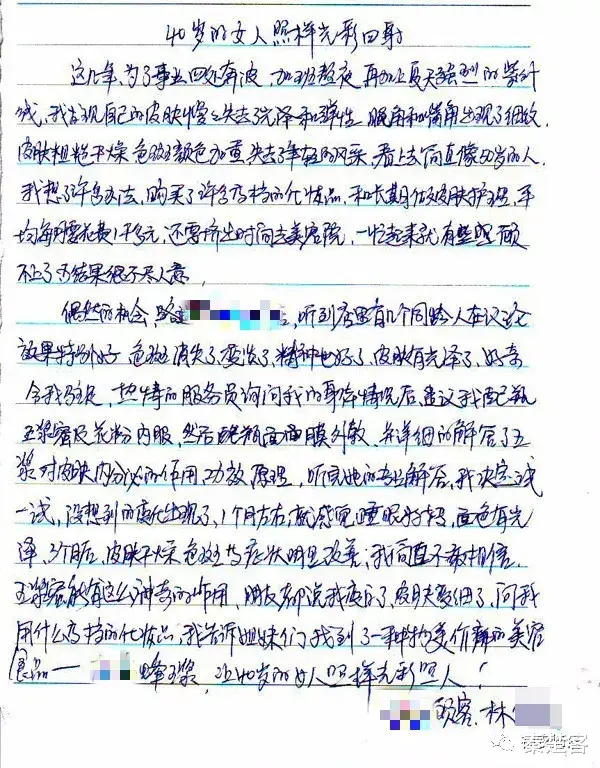 40岁的女人照样光彩四射
这几年,为了事业四处奔波,加班熬夜,再加上夏天强烈的紫外
线,我发现自己的皮肤慢慢失去光泽和弹性,眼角和嘴角出现了细纹,
皮肤粗糙干燥,色斑颜色加重,失去了年轻的风采,看上去简直像50岁的人,
我想了许多办法,购买了许多高档的化妆品,和长期做皮肤护理,平
均每月要花费1千多元,还要挤出时间去美容院,一忙起来就有些照顾
不上了,可结果很不尽人意,
偶然的机会,路过 店,听到店里有几个同龄人在议论
效果特别好,色斑消失了,变淡了,精神也好了,皮肤有光泽了,好奇
令我驻足,热情的服务员询问我的身体情况后,建议我配瓶
王浆蜜及花粉内服,然后 面膜外敷,并详细的解答了王
浆对皮肤内分泌的作用,功效,原理,听完她的专业解答,我决定试
一试,没想到的变化出现了,1个月左右,就感觉睡眠好转,面色有光
泽,3个月后,皮肤干燥,色斑等症状明显改善,我简直不敢相信,
王浆蜜能有这么神奇的作用,朋友都说我变白了,皮肤变细了,问我
用什么高档的化妆品,我告诉姐妹们,我找到了一种物美价廉的美容
食品— 蜂王浆,让40岁的女人照样光彩照人!
顾客:林
秦楚客